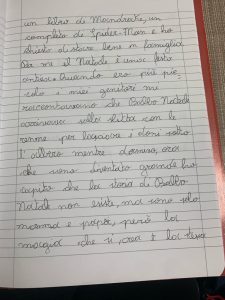 un libro di Maindcraft, un
completo di Spider-Man e ho
chiesto di stare bene in famiglia
Per me il Natale è una festa
antica Quando ero più pic-
colo i miei genitori mi
raccontavano che Babbo Natale
arrivava sulla slitta con le
renne per lasciare i doni sotto
l'albero mentre dormivo, ora
che sono diventato grande ho
capito che la storia di Babbo
Natale non esiste, ma sono solo
mamma e papà, però la
magia che si crea è la stessa